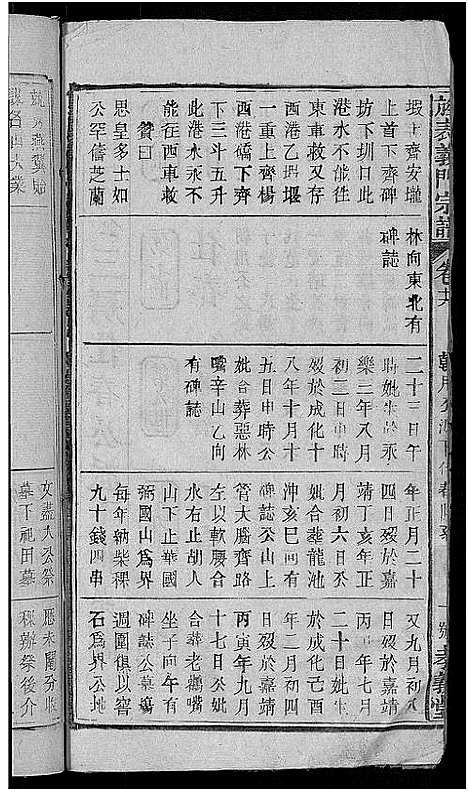 旌表義門宗譜
孝義堂
塅上齊安壠
上首下齊碑
坊下圳日此
港水不能往
東車救又存
乙港上埧堰
一重上齊楊
西港礄下齊
下三斗五升
此港水不
能在西車救
贊曰
思皇多士如
公罕儔芝蘭
林向東北有
碑誌
二十三日午
時妣生於永
樂三年八月
初三日申時
歿於成化十
八年十月十
五日申時公
妣合葬惡林
嘴辛山乙向
有碑誌
年正月二十
四日歿於嘉
靖丁亥年正
月初六日公
妣合葬龍池
沖亥巳向有
碑誌公山上
管大腦齊路
左以軟腰合
水右止胡人
山下止華國
弼國山爲界
每年納柴稞
九十錢四串
又九月初
日歿於嘉靖
丙 年七月
二十日妣生
於成化
年二月初四
日歿於嘉靖
丙寅年九月
十七日公妣
合葬老鸛嘴
坐子向午有
碑誌公墓塲
週圍俱以窖
石爲界公地
文蓋大公祭
墓下祀田墓
應未闔分收
稞辦祭後介